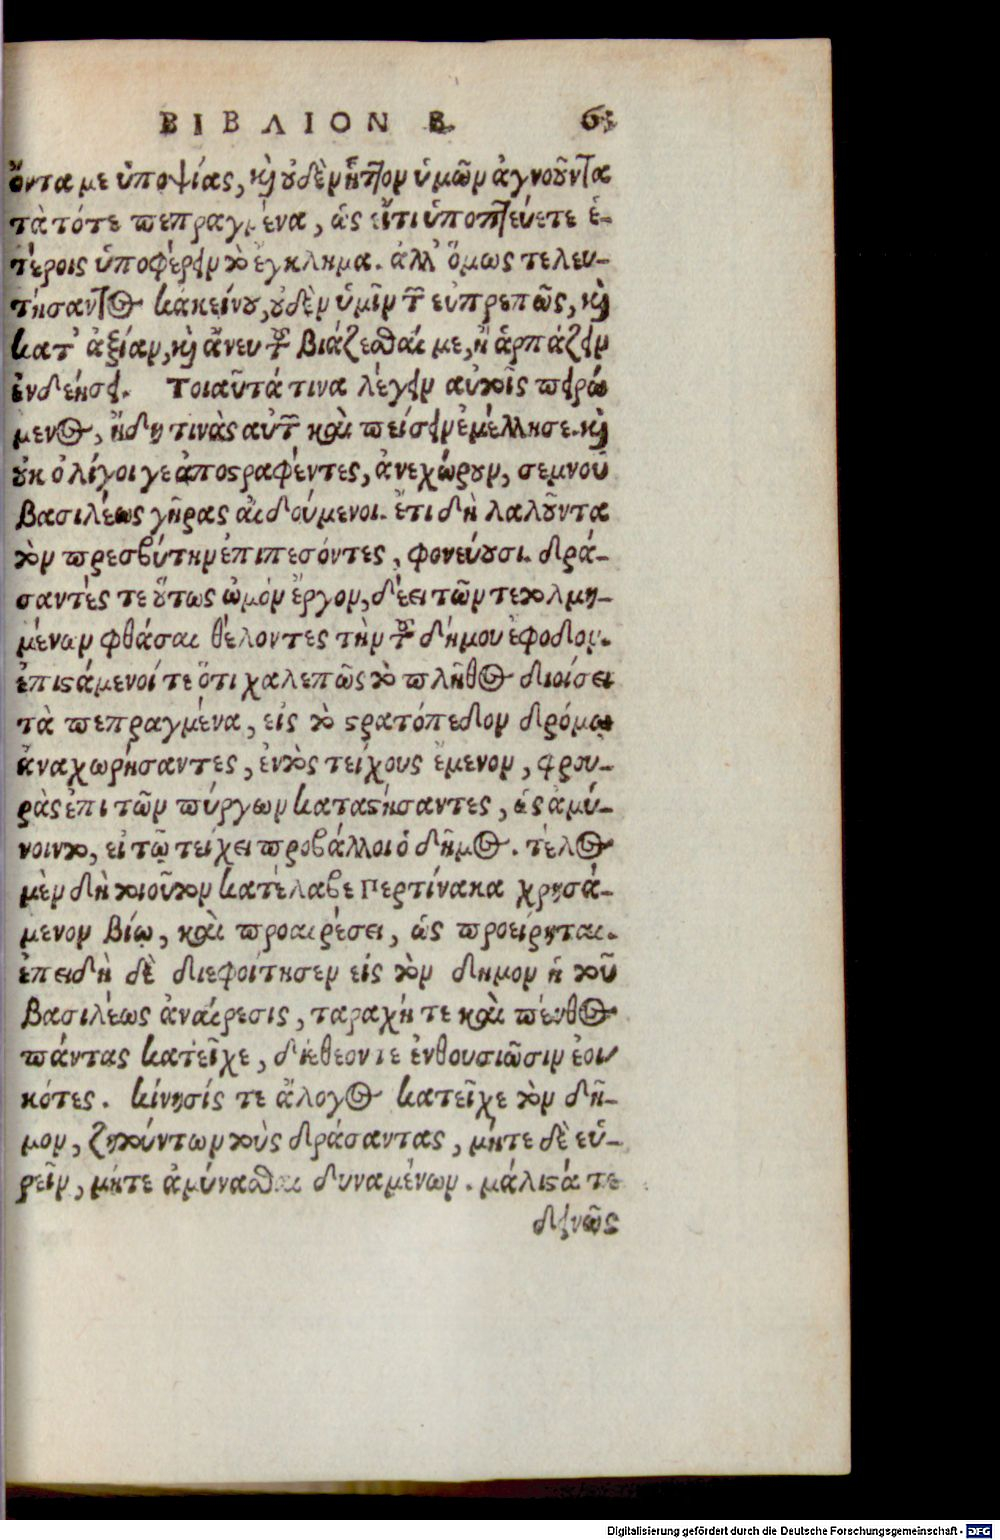 ΒΙΒΛΙΟΝ Β. 63
ὄντα με ὑποψίας, καὶ οὐδὲν ἧττον ὑμῶν ἀγνοοῦντα
τὰ τότε πεπραγμένα, ὡς εἴτι ὑποπτεύετε ἑ-
τέροις ὑποφέρειν τὸ ἔγκλημα. ἀλλ' ὅμως τελευ-
τήσαντος κἀκείνου, οὐδὲν ὑμῖν τῶν εὐπρεπῶς, καὶ
κατ' ἀξίαν, καὶ ἄνευ τοῦ βιάζεσθαί με, ἢ ἁρπάζειν
ἐνδεήσει. Τοιαῦτά τινα λέγειν αὐτοῖς πειρώ
μενος, ἤδη τινὰς αὐτῶν καὶ πείσειν ἐμέλλησε. καὶ
οὐκ ὀλίγοι γε ἀποστραφέντες, ἀνεχώρουν, σεμνοῦ
βασιλέως γῆρας αἰδούμενοι. ἔτι δὴ λαλοῦντα
τὸν πρεσβύτην ἐπιπεσόντες, φονεύουσι. δρά-
σαντές τε οὕτως ὠμὸν ἔργον, δέει τῶν τετολμη-
μένων φθάσαι θέλοντες τὴν τοῦ δήμου ἔφοδον.
ἐπιστάμενοί τε ὅτι χαλεπῶς τὸ πλῆθος διοίσει
τὰ πεπραγμένα, εἰς τὸ στρατόπεδον δρόμω
ἀναχωρήσαντες, ἐντὸς τείχους ἔμενον, φρου-
ρὰς ἐπὶ τῶν πύργων καταστήσαντες, ὡς ἀμύ-
νοιντο, εἰ τῷ τείχει προβάλλοι ὁ δῆμος. τέλος
μὲν δὴ τοιοῦτον κατέλαβε Περτίνακα χρησά-
μενον βίῳ, καὶ προαιρέσει, ὡς προείρηται.
ἐπειδὴ δὲ διεφοίτησεν εἰς τὸν δημον ἡ τοῦ
βασιλέως ἀναίρεσις, ταραχή τε καὶ πένθος
πάντας κατεῖχε, διέθεον τε ἐνθουσιῶσιν ἐοι
κότες. κίνησίς τε ἄλογος κατεῖχε τὸν δῆ-
μον, ζητούντων τοὺς δράσαντας, μήτε δὲ εὑ-
ρεῖν, μήτε ἀμύνασθαι δυναμένων. μάλιστά τε
δεινῶς
Digitalisierung gefördert durch die Deutsche Forschungsgemeinschaft - DFG